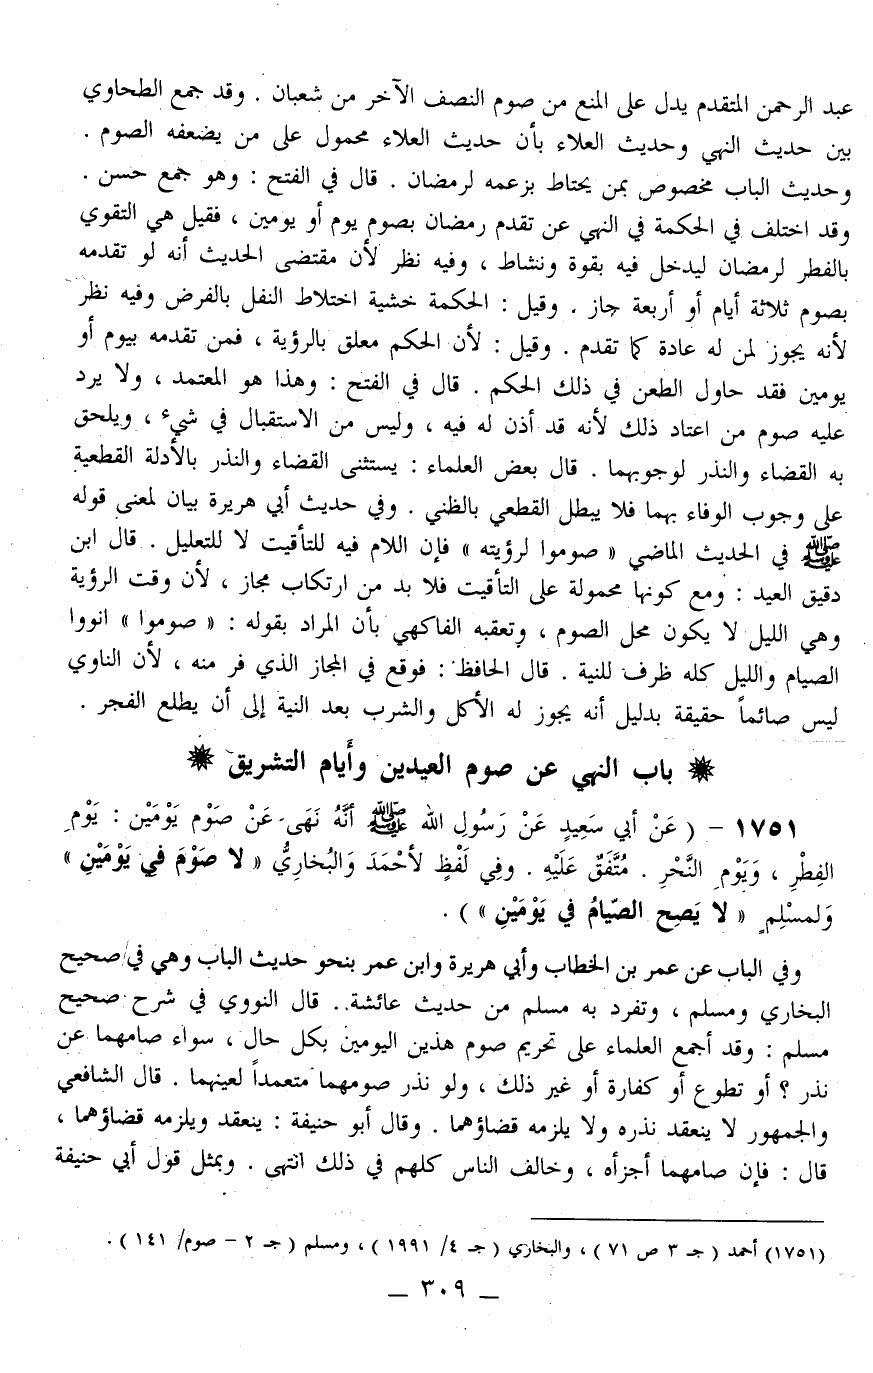 عبد الرحمن المتقدم يدل على المنع من صوم النصف الآخر من شعبان . وقد جمع الطحاوي
بين حديث النهي وحديث العلاء بأن حديث العلاء محمول على من يضعفه الصوم .
وحديث الباب مخصوص بمن يحتاط بزعمه لرمضان . قال في الفتح : وهو جمع حسن .
وقد اختلف في الحكمة في النهي عن تقدم رمضان بصوم يوم أو يومين ، فقيل هي التقوي
بالفطر لرمضان ليدخل فيه بقوة ونشاط ، وفيه نظر لأن مقتضى الحديث أنه لو تقدمه
بصوم ثلاثة أيام أو أربعة جاز . وقيل : الحكمة خشية اختلاط النفل بالفرض وفيه نظر
لأنه يجوز لمن له عادة كما تقدم . وقيل : لأن الحكم معلق بالرؤية ، فمن تقدمه بيوم أو
يومين فقد حاول الطعن في ذلك الحكم . قال في الفتح : وهذا هو المعتمد ، ولا يرد
عليه صوم من اعتاد ذلك لأنه قد أذن له فيه ، وليس من الاستقبال في شيء ، ويلحق
به القضاء والنذر لوجوبهما . قال بعض العلماء : يستثنى القضاء والنذر بالأدلة القطعية
على وجوب الوفاء بهما فلا يبطل القطعي بالظني . وفي حديث أبي هريرة بيان لمعنى قوله
ﷺ في الحديث الماضي « صوموا لرؤيته » فإن اللام فيه للتأقيت لا للتعليل . قال ابن
دقيق العيد : ومع كونها محمولة على التأقيت فلا بد من ارتكاب مجاز ، لأن وقت الرؤية
وهي الليل لا يكون محل الصوم ، وتعقبه الفاكهي بأن المراد بقوله : « صوموا » انووا
الصيام والليل كله ظرف للنية . قال الحافظ : فوقع في المجاز الذي فر منه ، لأن الناوي
ليس صائماً حقيقة بدليل أنه يجوز له الأكل والشرب بعد النية إلى أن يطلع الفجر .
❋ باب النهي عن صوم العيدين وأيام التشريق ❋
١٧٥١ – ( عَنْ أبي سَعِيدٍ عَنْ رَسُولِ الله ﷺ أنَّهُ نَهَى عَنْ صَوْمِ يَوْمَيْنِ : يَوْمِ
الفِطْرِ ، وَيَوْمِ النَّحْرِ . مُتَّفَقٌ عَلَيْهِ . وفِي لَفْظٍ لأحْمَدَ وَالبُخَارِيُّ « لا صَوْمَ في يَوْمَيْنِ »
وَلمسْلِمٍ « لا يَصِح الصّيَامُ في يَوْمَيْنِ » ) .
وفي الباب عن عمر بن الخطاب وأبي هريرة وابن عمر بنحو حديث الباب وهي في صحيح
البخاري ومسلم ، وتفرد به مسلم من حديث عائشة . قال النووي في شرح صحيح
مسلم : وقد أجمع العلماء على تحريم صوم هذين اليومين بكل حال ، سواء صامهما عن
نذر ؟ أو تطوع أو كفارة أو غير ذلك ، ولو نذر صومهما متعمداً لعينهما . قال الشافعي
والجمهور لا ينعقد نذره ولا يلزمه قضاؤهما . وقال أبو حنيفة : ينعقد ويلزمه قضاؤهما ،
قال : فإن صامهما أجزأه ، وخالف الناس كلهم في ذلك انتهى . وبمثل قول أبي حنيفة
(١٧٥١) أحمد ( جـ ٣ ص ٧١ ) ، والبخاري ( جـ ٤/ ١٩٩١ ) ، ومسلم ( جـ ٢ – صوم/ ١٤١ ) .
— ٣٠٩ —